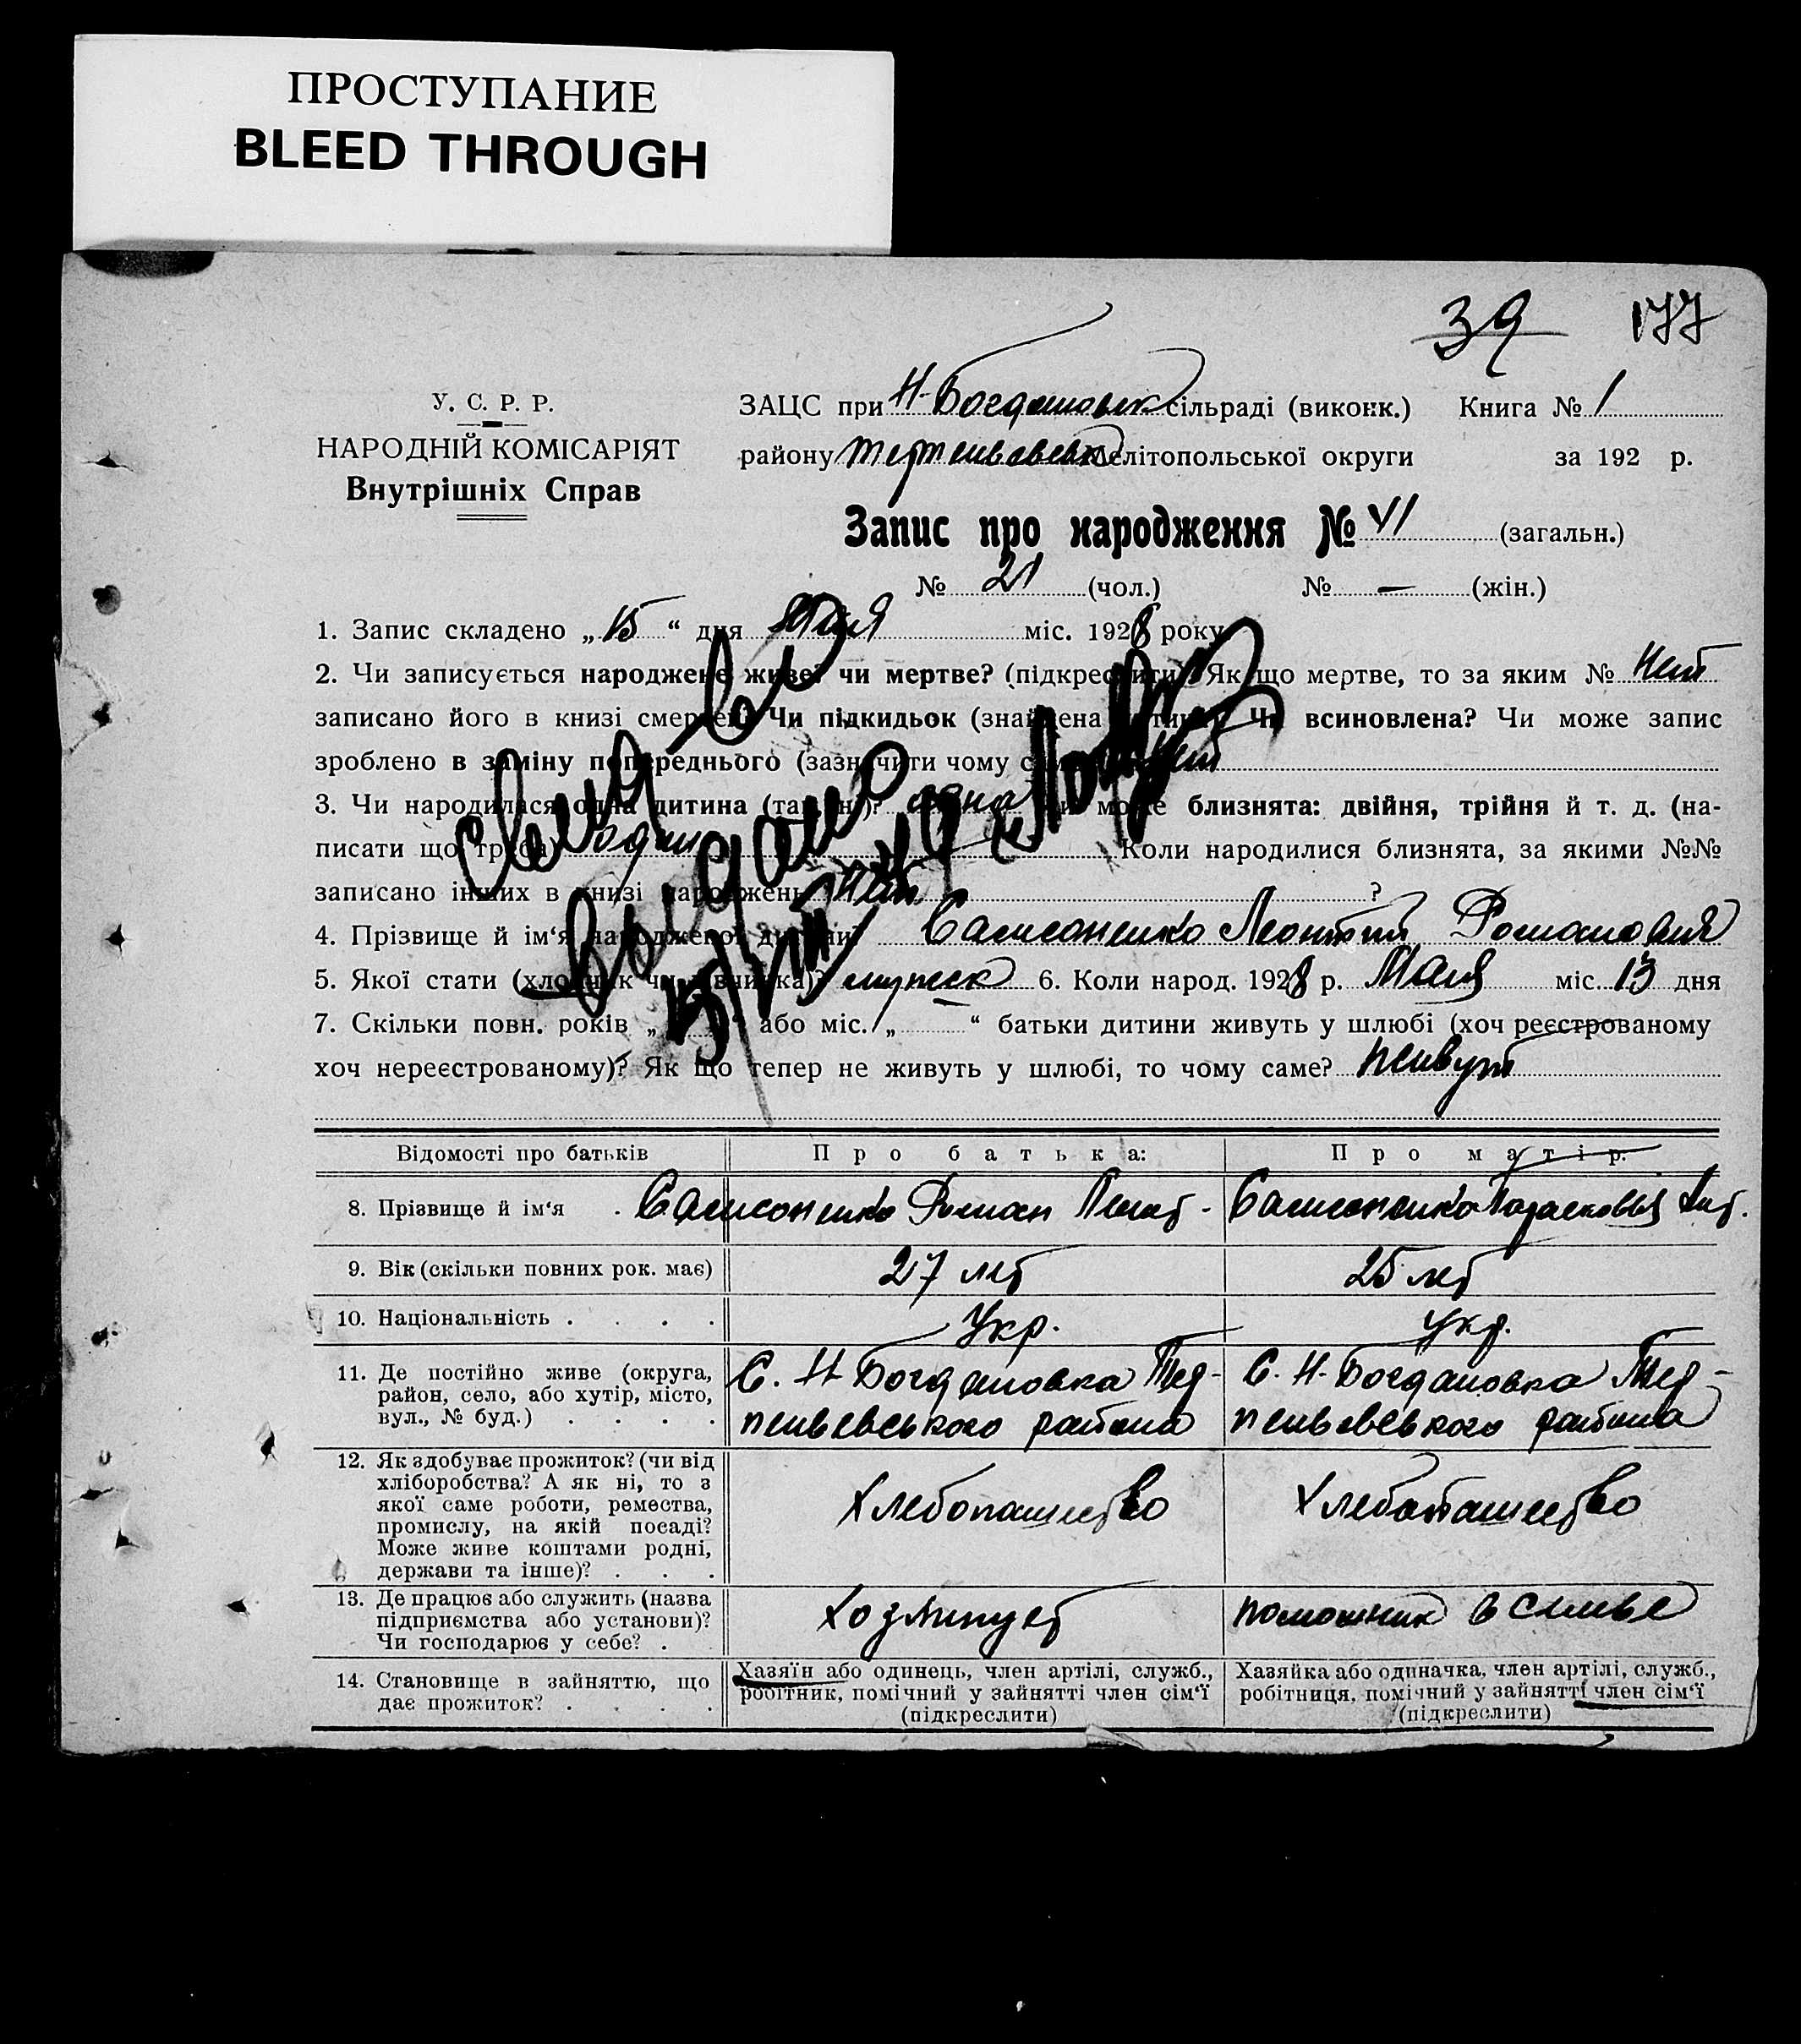 ПРОСТУПАНИЕ
BLEED THROUGH
39 177
У. С. Р. Р.
НАРОДНІЙ КОМІСАРІЯТ
Внутрішніх Справ
ЗАЦС при Н-Богдановск сільраді (виконк.) Книга № 1
району Мелітопольської округи за 192 р.
Запис про народження № 41 (загальн.)
№ 21 (чол.) № — (жін.)
1. Запис складено „ 15 “ дня Мая міс. 1928 року
2. Чи записується народжене живе чи мертве? (підкреслити) Як що мертве, то за яким № Нет
записано його в книзі смертей? Чи підкидьок (знайдена дитина)? Чи всиновлена? Чи може запис
зроблено в заміну попереднього (зазначити чому саме) Нет
3. Чи народилася одна дитина (так чи ні)? одна Чи може близнята: двійня, трійня й т. д. (на-
писати що треба) один Коли народилися близнята, за якими №№
записано інших в книзі народжень Нет ?
4. Прізвище й ім‘я народженої дитини? Самсоненко Леонтий Романович
5. Якої стати (хлопчик чи дівчинка)? мужск 6. Коли народ. 1928 р. Мая міс. 13 дня
7. Скільки повн. років „ “ або міс. „ “ батьки дитини живуть у шлюбі (хоч реєстрованому
хоч нереєстрованому)? Як що тепер не живуть у шлюбі, то чому саме? живут
Відомості про батьків Про батька: Про матір.
8. Прізвище й ім‘я . Самсоненко Роман Самсоненко Парасковья
9. Вік (скільки повних рок. має) 27 лет 25 лет
10. Національність . . . . Укр. Укр.
11. Де постійно живе (округа, район, село, або хутір, місто, вул., № буд.) . . . .
С. Н-Богдановка Тер-
пеньевського района
С. Н-Богдановка Тер-
пеньевского района
12. Як здобуває прожиток? (чи від
хліборобства? А як ні, то з
якої саме роботи, ремества,
промислу, на якій посаді?
Може живе коштами родні,
держави та інше)? . . .
Хлебопашество Хлебопашество
13. Де працює або служить (назва
підприємства або установи)?
Чи господарює у себе? .
Хозяинует помощник в семье
14. Становище в зайняттю, що
дає прожиток? . . . .
Хазяїн або одинець, член артілі, служб.,
робітник, помічний у зайнятті член сім‘ї
(підкреслити)
Хазяйка або одиначка, член артілі, служб.,
робітниця, помічний у зайнятті член сім‘ї
(підкреслити)